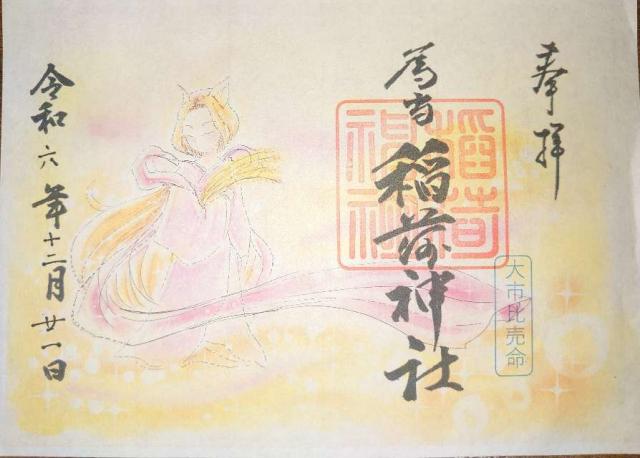 奉拝
稲荷神社
稲荷神社
大市比売命
令和六年十二月廿一日